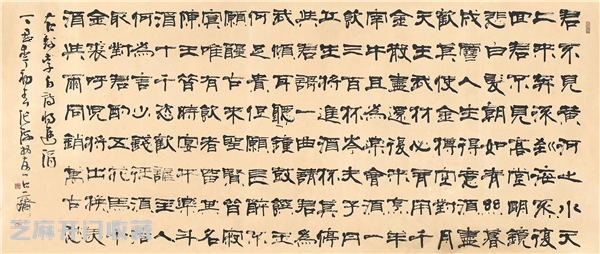 君不見黃河之水天
上來奔流到海不復
回君不見高堂明鏡
悲白髮朝如青絲暮
成雪人生得意須盡
歡莫使金樽空對月
天生我材必有用千
金散盡還復來烹羊
宰牛且為樂會須一
飲三百杯岑夫子丹
丘生將進酒杯莫停
與君歌一曲請君為
我傾耳聽鐘鼓饌玉
何足貴但願長醉不
願醒古來聖賢皆寂
寞惟有飲者留其名
陳王昔時宴平樂酒
斗十千恣歡謔主人
何為言少錢徑須沽
取對君酌五花馬千
金裘呼兒將出換美
酒與爾同銷萬古愁
右錄李白詩將進酒
芝麻开门收藏